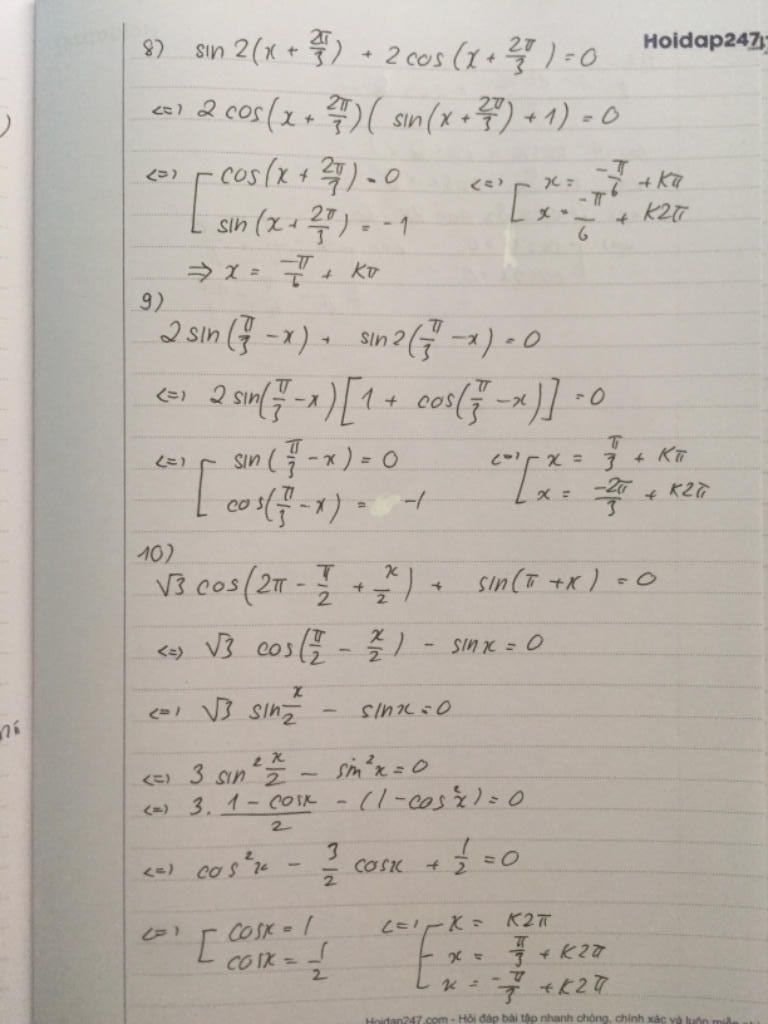 Hoidap247
8) sin 2(x + 2π/3) + 2cos (x + 2π/3) = 0
<=> 2 cos(x + 2π/3)( sin(x + 2π/3) + 1) = 0
<=> [ cos(x + 2π/3) = 0 <=> [ x = -π/6 + Kπ
sin(x + 2π/3) = -1 x = -π/6 + K2π
=> x = -π/6 + Kπ
9)
2 sin(π/3 - x) + sin 2(π/3 - x) = 0
<=> 2 sin(π/3 - x)[1 + cos(π/3 - x)] = 0
<=> [ sin(π/3 - x) = 0 <=> [ x = π/3 + Kπ
cos(π/3 - x) = -1 x = -2π/3 + K2π
10)
√3 cos(2π - π/2 + x/2) + sin(π + x) = 0
<=> √3 cos(π/2 - x/2) - sinx = 0
<=> √3 sin x/2 - sinx = 0
<=> 3 sin² x/2 - sin²x = 0
<=> 3. (1 - cosx)/2 - (1 - cos²x) = 0
<=> cos²x - 3/2 cosx + 1/2 = 0
<=> [ cosx = 1 <=> [ x = K2π
cosx = 1/2 x = π/3 + K2π
x = -π/3 + K2π
Hoidap247.com - Hỏi đáp bài tập nhanh chóng, chính xác và luôn miễn